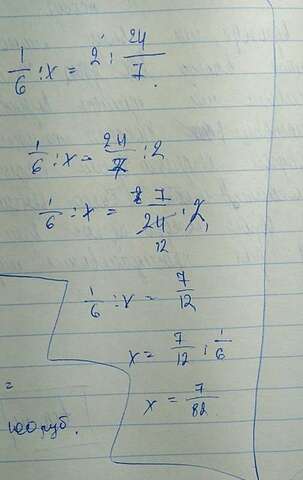 1/6 : x = 2 : 24/7
1/6 : x = 24/7 : 2
1/6 : x = 7/24 · 2
12
1/6 : x = 7/12
x = 7/12 : 1/6
x = 7/82
=
100 руб.